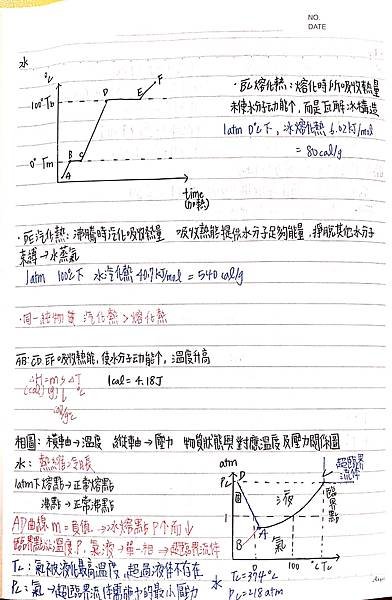 NO.
DATE
水
℃
100° Tb
0° Tm
A
B
C
D
E
F
time
(加熱)
·BC熔化熱:熔化時所吸收熱量
未使水分子動能↑,而是瓦解冰構造
1atm 0℃下,冰熔化熱 6.02kJ/mol
= 80 cal/g
·DE汽化熱:沸騰時汽化吸收熱量 吸收熱能提供水分子足夠能量,掙脫其他水分子
束縛→水蒸氣
1atm 100℃下 水汽化熱 40.7kJ/mol = 540 cal/g
·同一純物質 汽化熱>熔化熱
AB. CD. EF 吸收熱能,使水分子動能↑,溫度升高
△H=m s △T
(cal) (g) ℃
1cal = 4.18J
相圖:橫軸→溫度 縱軸→壓力 物質狀態與對應溫度及壓力關係圖
水:熱縮冷脹
1atm下熔點→正常熔點
沸點→正常沸點
AD曲線 m=負值→冰熔點P↑而↓
Tc:氣被液化最高溫度,超過液体不存在
Pc:氣→超臨界流体需施予的最小壓力
atm
Pc
D
固
液
氣
1
A
B
0
100
℃
Tc
C
臨界點
超臨界
流体
Tc=374℃
Pc=218 atm